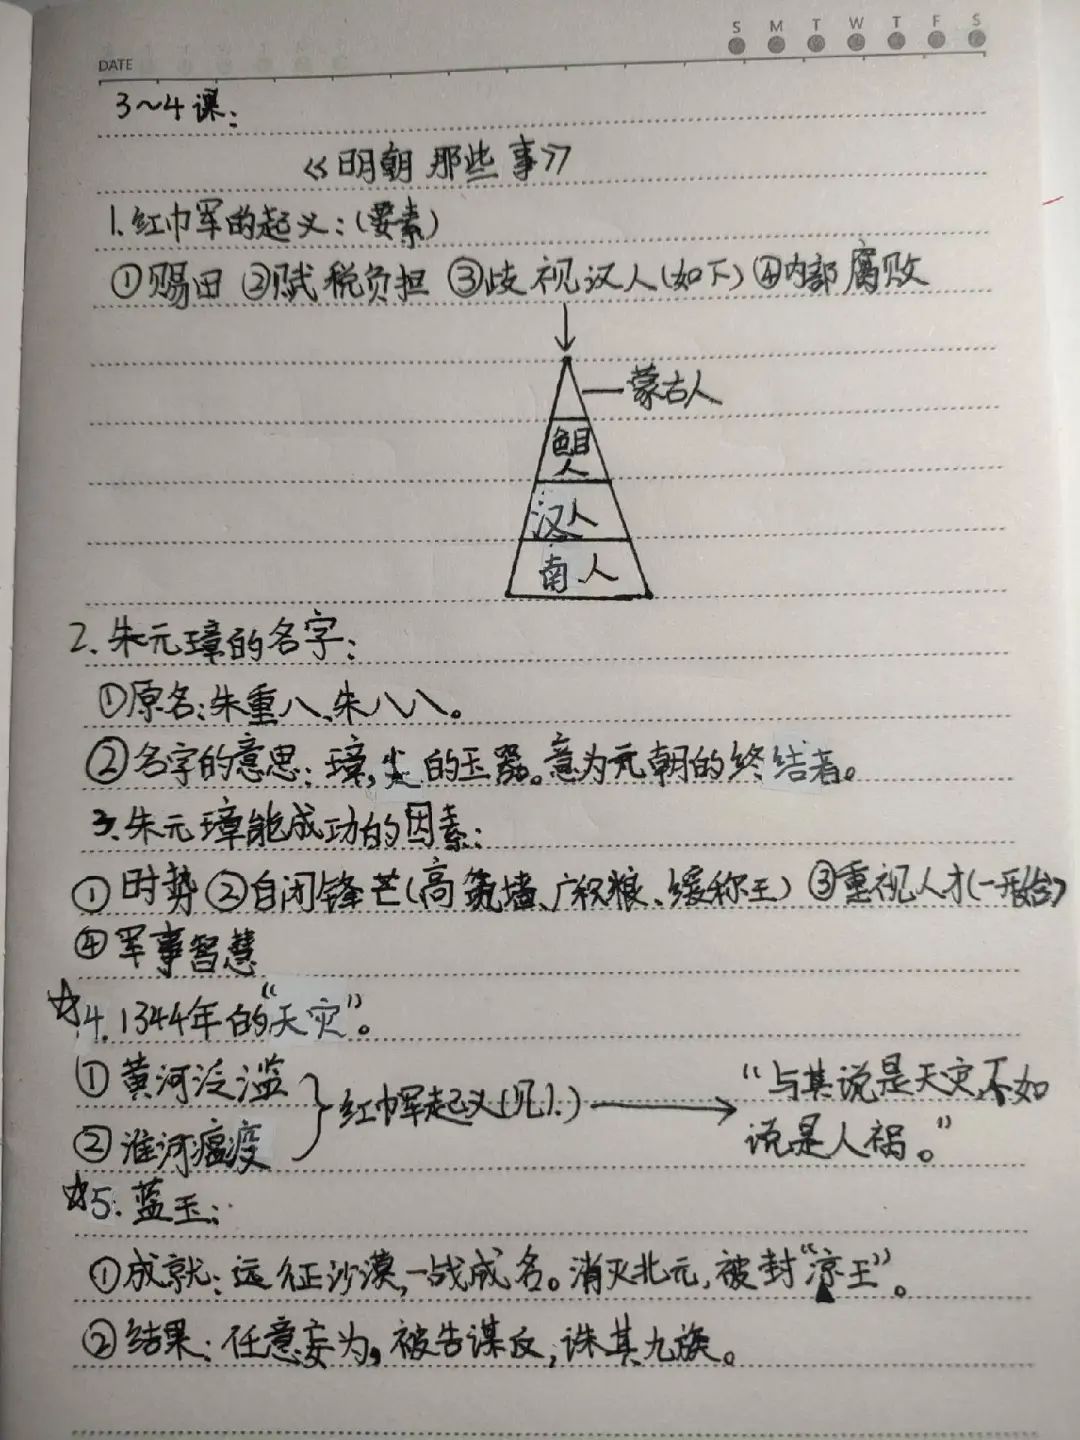 S M T W T F S
DATE
3~4课:
《明朝那些事》
1.红巾军的起义:(要素)
①赐田 ②赋税负担 ③歧视汉人(如下) ④内部腐败
蒙古人
色目
人
汉人
南人
2.朱元璋的名字:
①原名:朱重八、朱八八。
②名字的意思:璋,尖的玉器。意为元朝的终结者。
3.朱元璋能成功的因素:
①时势 ②自闭锋芒(高筑墙、广积粮、缓称王) ③重视人才(一开始)
④军事智慧
☆4.1344年的“天灾”。
①黄河泛滥
②淮河瘟疫
红巾军起义(见1.)
“与其说是天灾,不如
说是人祸。”
☆5.蓝玉:
①成就:远征沙漠,一战成名。消灭北元,被封“凉王”。
②结果:任意妄为,被告谋反,诛其九族。